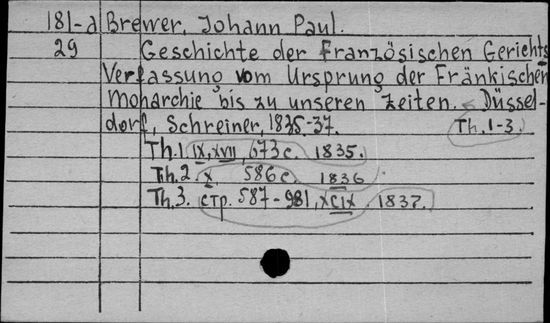 181-a Brewer, Johann Paul.
29 Geschichte der Französischen Gerichts
Verfassung vom Ursprung der Fränkischen
Monarchie bis zu unseren Zeiten. Düssel-
dorf, Schreiner, 1835-37. Th. 1-3.
Th. 1. IX, XVII, 673 с. 1835.
Th. 2. X, 586 с. 1836
Th. 3. стр. 587-981, XCIX. 1837.